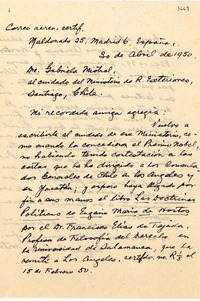 3669
Correo aéreo, certif.
Maldonado 25, Madrid 6. España,
30 de Abril de 1950
Da. Gabriela Mistral,
al cuidado del Ministerio de R. Exteriores,
Santiago, Chile.
Mi recordada amiga egregia:
Vuelvo a
escribirle al cuidado de ese Ministerio, co-
mo cuando le concedieron el Premio Nobel,
no habiendo tenido contestación a las
cartas que le he dirigido a los Consula-
dos Generales de Chile en Los Angeles y
en Yucatán; y espero haya llegado por
fin a sus manos el libro Las Doctrinas
Políticas de Eugenio María de Hostos
por el Dr. Francisco Elías de Tejada,
Profesor de Filosofía del Derecho en
la Universidad de Salamanca, que le
remití a Los Angeles, certifdo. el
15 de Febrero 50.